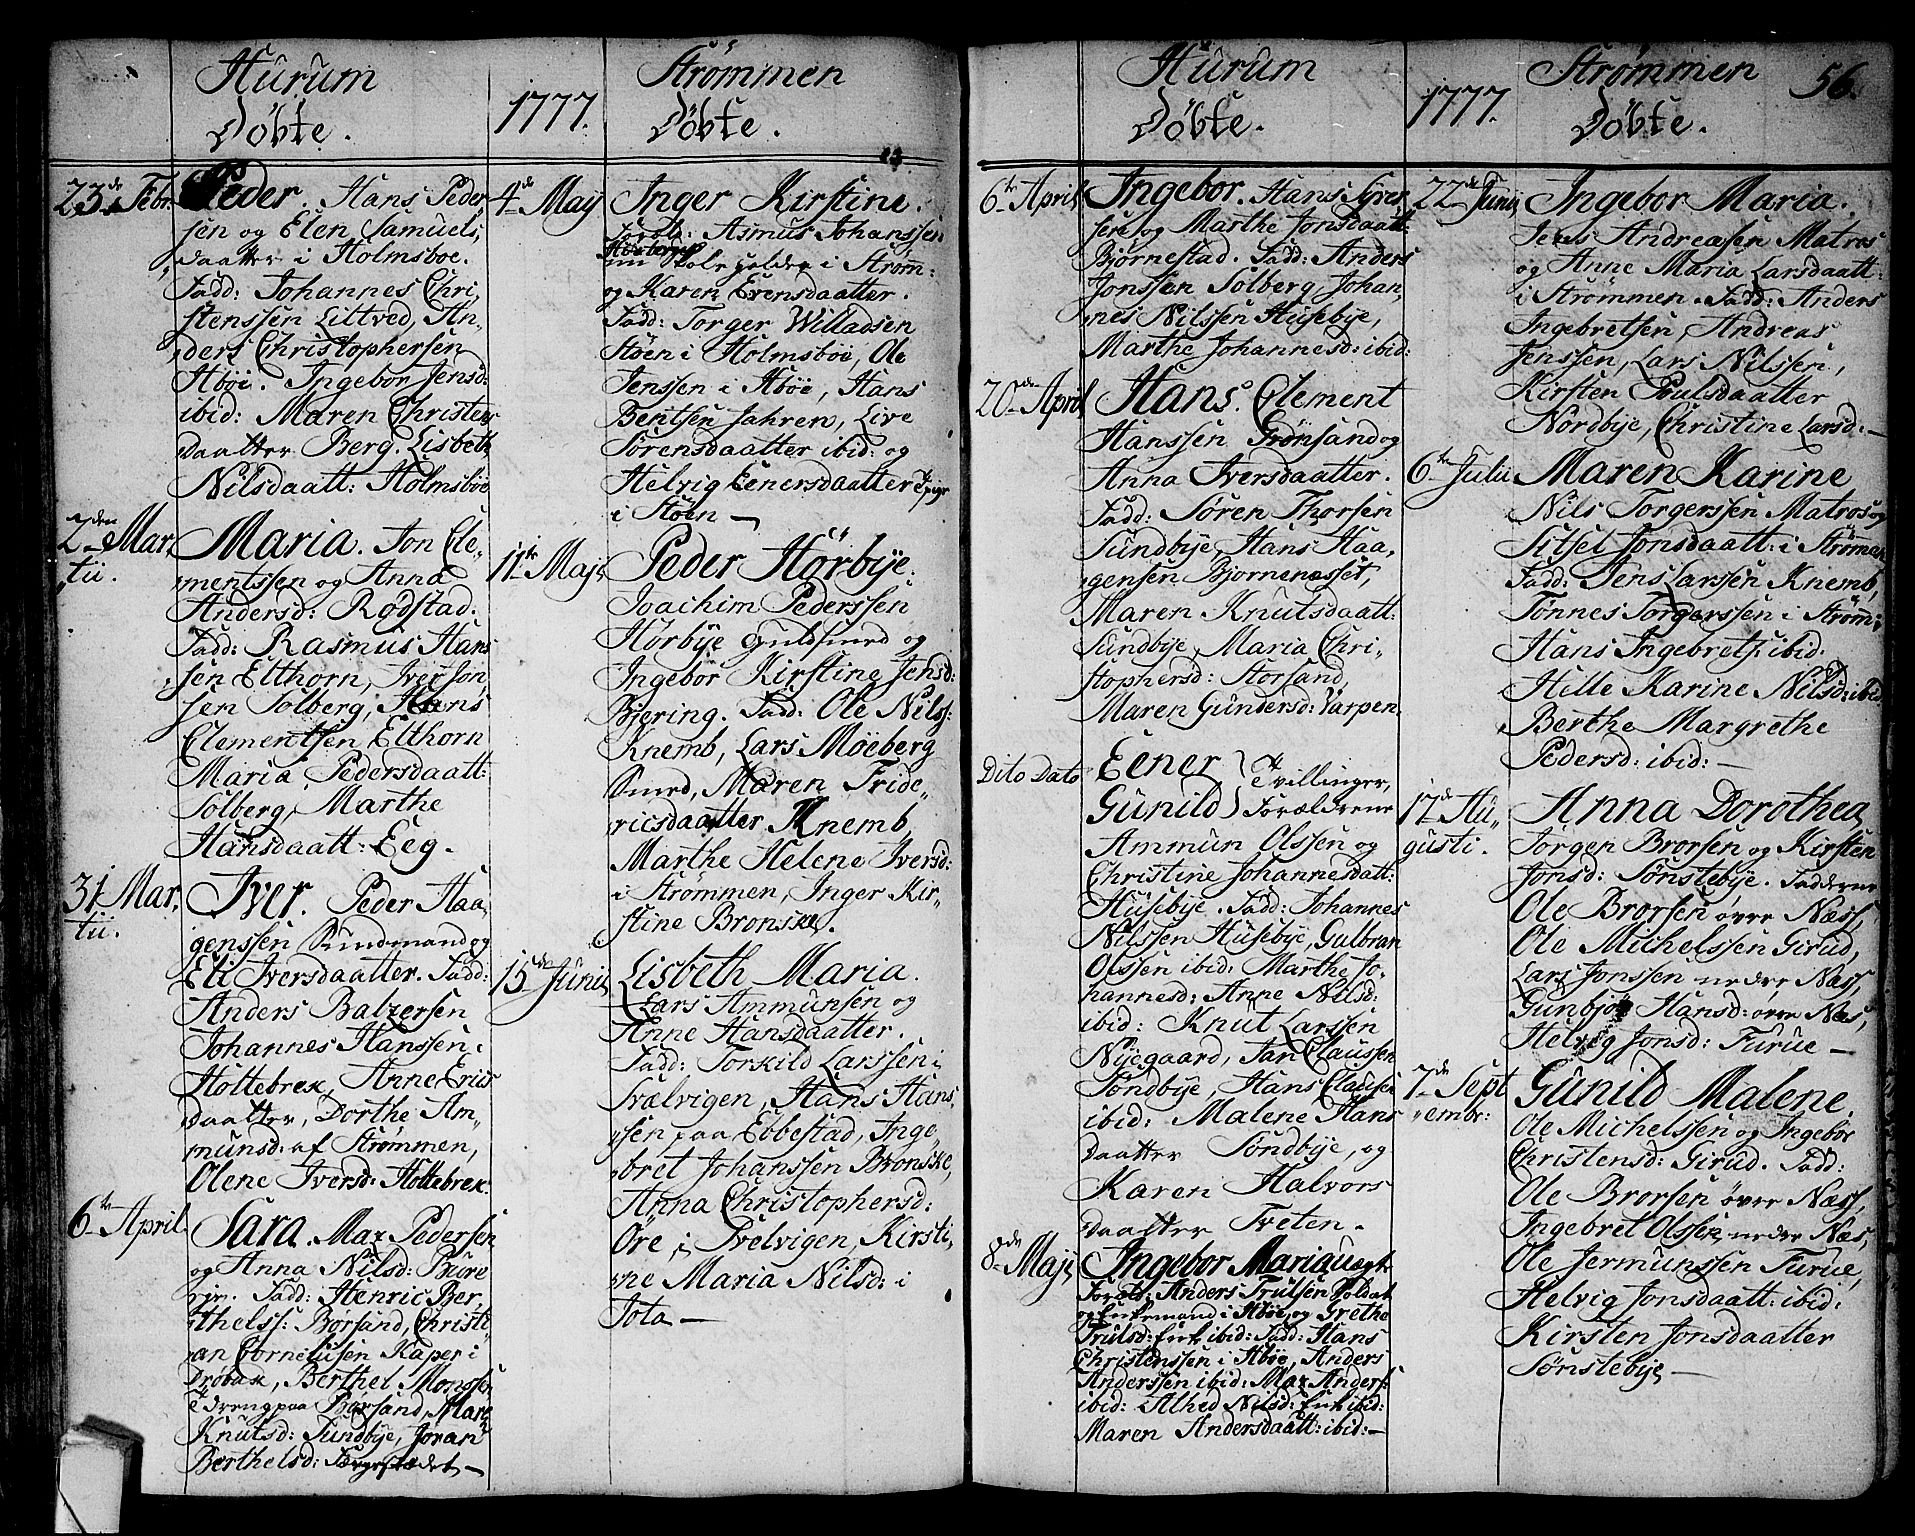 Hurum
Döbte.
1777.
Strømmen
Döbte.
23de Febr.
Peder. Hans Peder
sen og Elen Samuels,
daatter i Holmsboe.
Fadd: Johannes Chri,
stenssen Littved, An,
ders Christophersen
Aböe. Ingebor Jensd:
ibid: Maren Christens
daatter Berg. Lisbeth
Nilsdaatt: Holmsböe
2den Mar,
tii.
Maria. Jon Cle,
mentssen og Anna
Andersd: Rødstad.
Fadd: Rasmus Hans
sen Elthorn, Iver Jon
sen Solberg, Hans
Clementsen Elthorn
Maria Pedersdaatt:
Solberg, Marthe
Hansdaatt: Eeg.
31 Mar,
tii.
Iver. Peder Haa,
genssen Sundmand og
Eli Iversdaatter. Fadd:
Anders Balzersen
Johannes Hanssen i
Holtebrek, Anne Erics
daatter, Dorthe Am,
munsd: af Strømmen,
Olene Iversd: Holtebrek.
6te April
Sara. Max Pedersen
og Anna Nilsd: Bure
Fadd: Henric Ber,
thelss: Borsand, Christi,
an Cornelusen Kaper i
Drøbak, Berthel Monssen
Dreng paa Borsand, Mare
Knutsd: Sundbye, Joran
Berthelsd: Færgestædet —
4de Maij
Inger Kirstine.
Foreld: Asmus Johanssen
og Karen Evensdaatter.
Fadd: Torger Willadsen
Støen i Holmsböe, Ole
Jenssen i Aböe, Hans
Bentsen Jahren, Live
Sörensdaatter ibid: og
Helvig Eenersdaatter Pige
i Støen —
11te Maji
Peder Hörbye.
Joachim Pederssen
Hörbye Guldsmed og
Ingebor Kirstine Jensd:
Bjering. Fadd: Ole Nilss:
Knemb, Lars Möeberg
Smed, Maren Fride,
ricsdaatter Knemb,
Marthe Helene Iversd:
i Strømmen, Inger Kir,
stine Bronske.
15de Junii
Lisbeth Maria.
Lars Ammunsen og
Anne Hansdaatter.
Fadd: Torkild Larssen i
Svelvigen, Hans Hans,
sen paa Eobestad, Inge,
bret Johanssen Bronske,
Anna Christophersd:
Öre i Svelvigen, Kirsti,
ne Maria Nilsd: i
Tota —
Hurum
Döbte.
1777.
Strømmen
Döbte.
56.
6te April
Ingebor. Hans Syver
sen og Marthe Jonsdaatt:
Bjørnestad. Fadd: Anders
Jonssen Solberg, Johan,
nes Nilssen Husebye,
Marthe Johannesd: ibid:
20de April
Hans. Clement
Hanssen Trönsand og
Anna Iversdaatter.
Fadd: Sören Thorsen
Sundbye, Hans Haa,
gensen Bjorneneset,
Maren Knutsdaatt:
Sundbye, Maria Chri,
stophersd: Storsand,
Maren Gundersd: Varpen.
Dito Dato
Eener
Gunild
Tvillinger,
Forældrene
Ammun Olssen og
Christine Johannesdatt:
Husebye. Fadd: Johannes
Nilssen Husebye, Gulbran
Olssen ibid: Marthe Jo,
hannesd: Anne Nilsd:
ibid: Knut Larssen
Nygaard, Jan Claussen
Söndbye, Hans Clausen
ibid: Malene Hans
daatter Söndbye, og
Karen Halvors
daatter Tveten.
8de Maji
Ingebor Maria uægte
Foreld: Anders Trulsen Soldat
og Enkemand i Aböe, og Grethe
Trulsd: Enke ibid: Fadd: Hans
Christenssen i Aböe, Anders
Anderssen ibid: Max Anders:
ibid: Alhed Nilsd: Enke ibid:
Maren Andersdaatt: ibid: —
22de Junii
Ingebor Maria.
Jens Andreæsen Matros
og Anne Maria Larsdaatt:
i Strømmen. Fadd: Anders
Ingebretsen, Andreas
Jenssen, Lars Nilssen,
Kirsten Poulsdaatter
Nordbye, Christine Larsd: —
6te Julii
Maren Karine
Nils Torgerssen Matros og
Sitsel Jonsdaatt: i Strøm
Fadd: Jens Larssen Knemb,
Tönnes Torgerssen i Strøm:
Hans Ingebrets: ibid:
Helle Karine Nilsd: ibid
Berthe Margrethe
Pedersd: ibid: —
17de Au,
gusti.
Anna Dorothea
Jörgen Brorsen og Kirsten
Jonsd: Sönstebye. Fadderne
Ole Brorsen övre Næss,
Ole Michelssen Girud,
Lars Jonssen nedre Næss,
Gunbjor Hansd: övre Næs,
Helvig Jonsd: Furue —
7de Sept
embr:
Gunild Malene.
Ole Michelssen og Ingebor
Christensd: Girud. Fadd:
Ole Brorsen övre Næss,
Ingebret Olssen, nedre Næs,
Ole Jermunssen Furue,
Helvig Jonsdaatt: ibid:
Kirsten Jonsdaatter
Sönstebye —